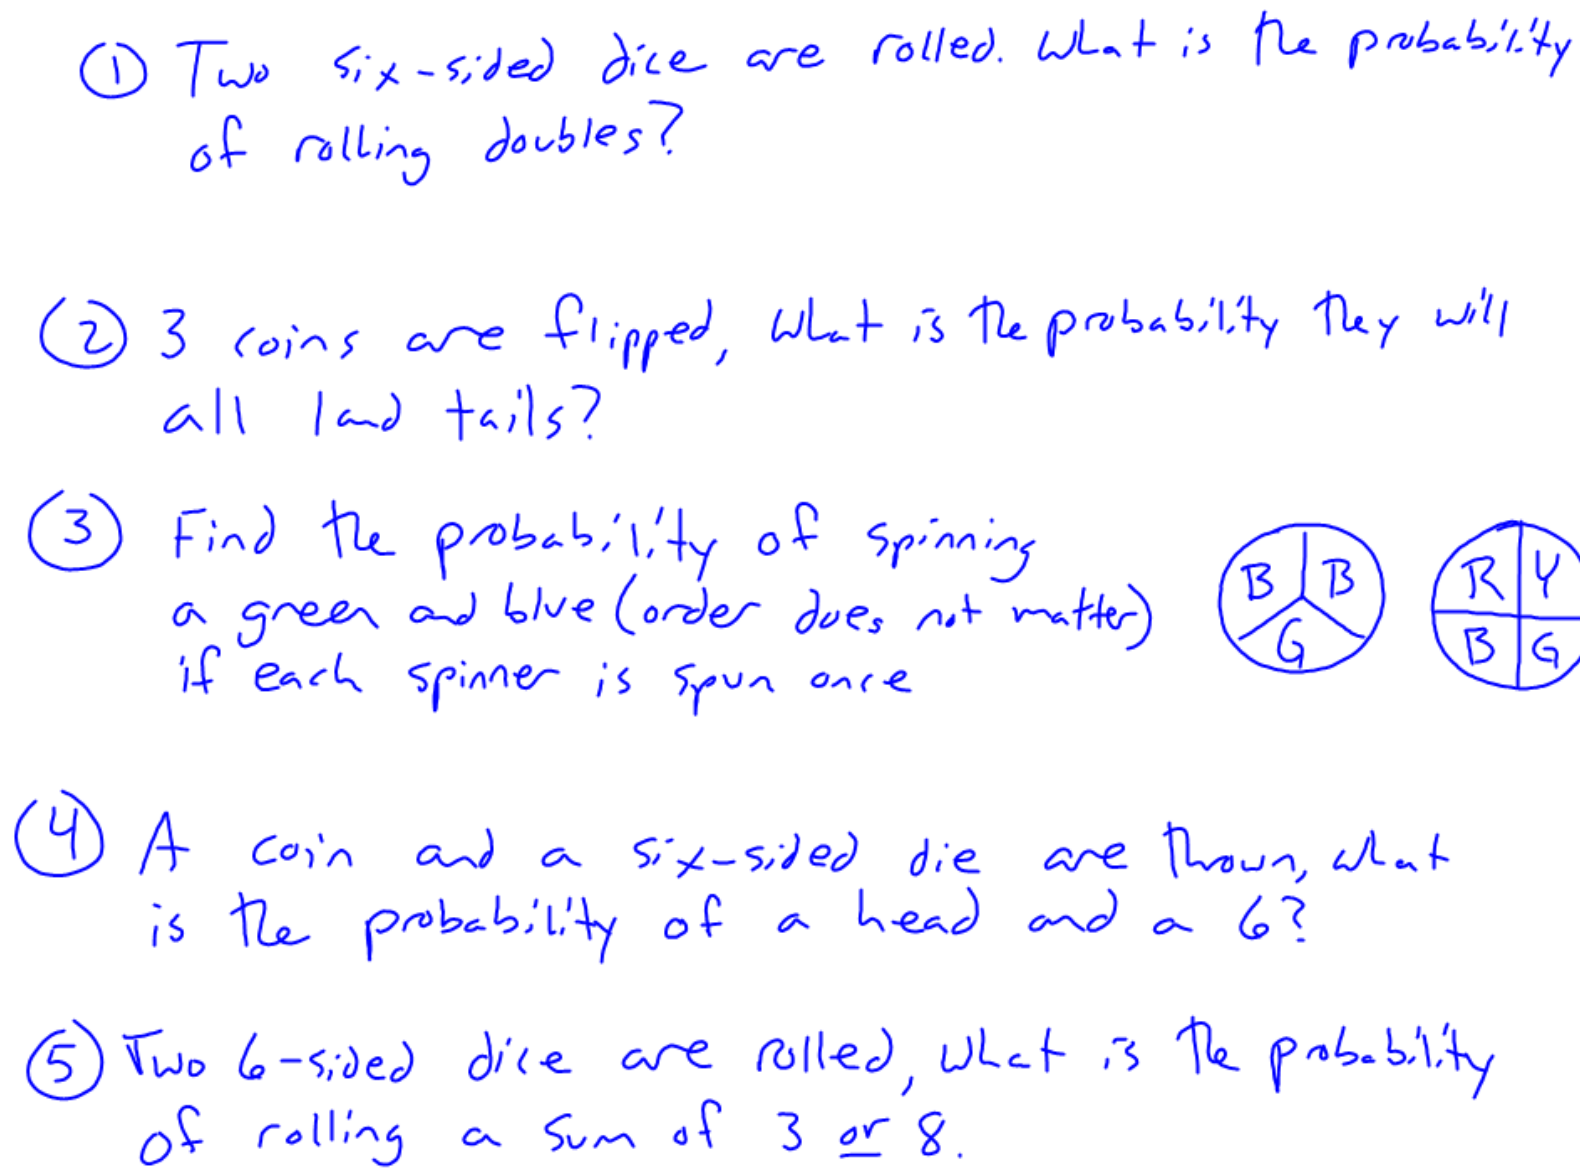 ① Two six-sided dice are rolled. What is the probability
of rolling doubles?
② 3 coins are flipped, what is the probability they will
all land tails?
③ Find the probability of spinning
a green and blue (order does not matter)
if each spinner is spun once
B B
G
R Y
B G
④ A coin and a six-sided die are thrown, what
is the probability of a head and a 6?
⑤ Two 6-sided dice are rolled, what is the probability
of rolling a sum of 3 or 8.